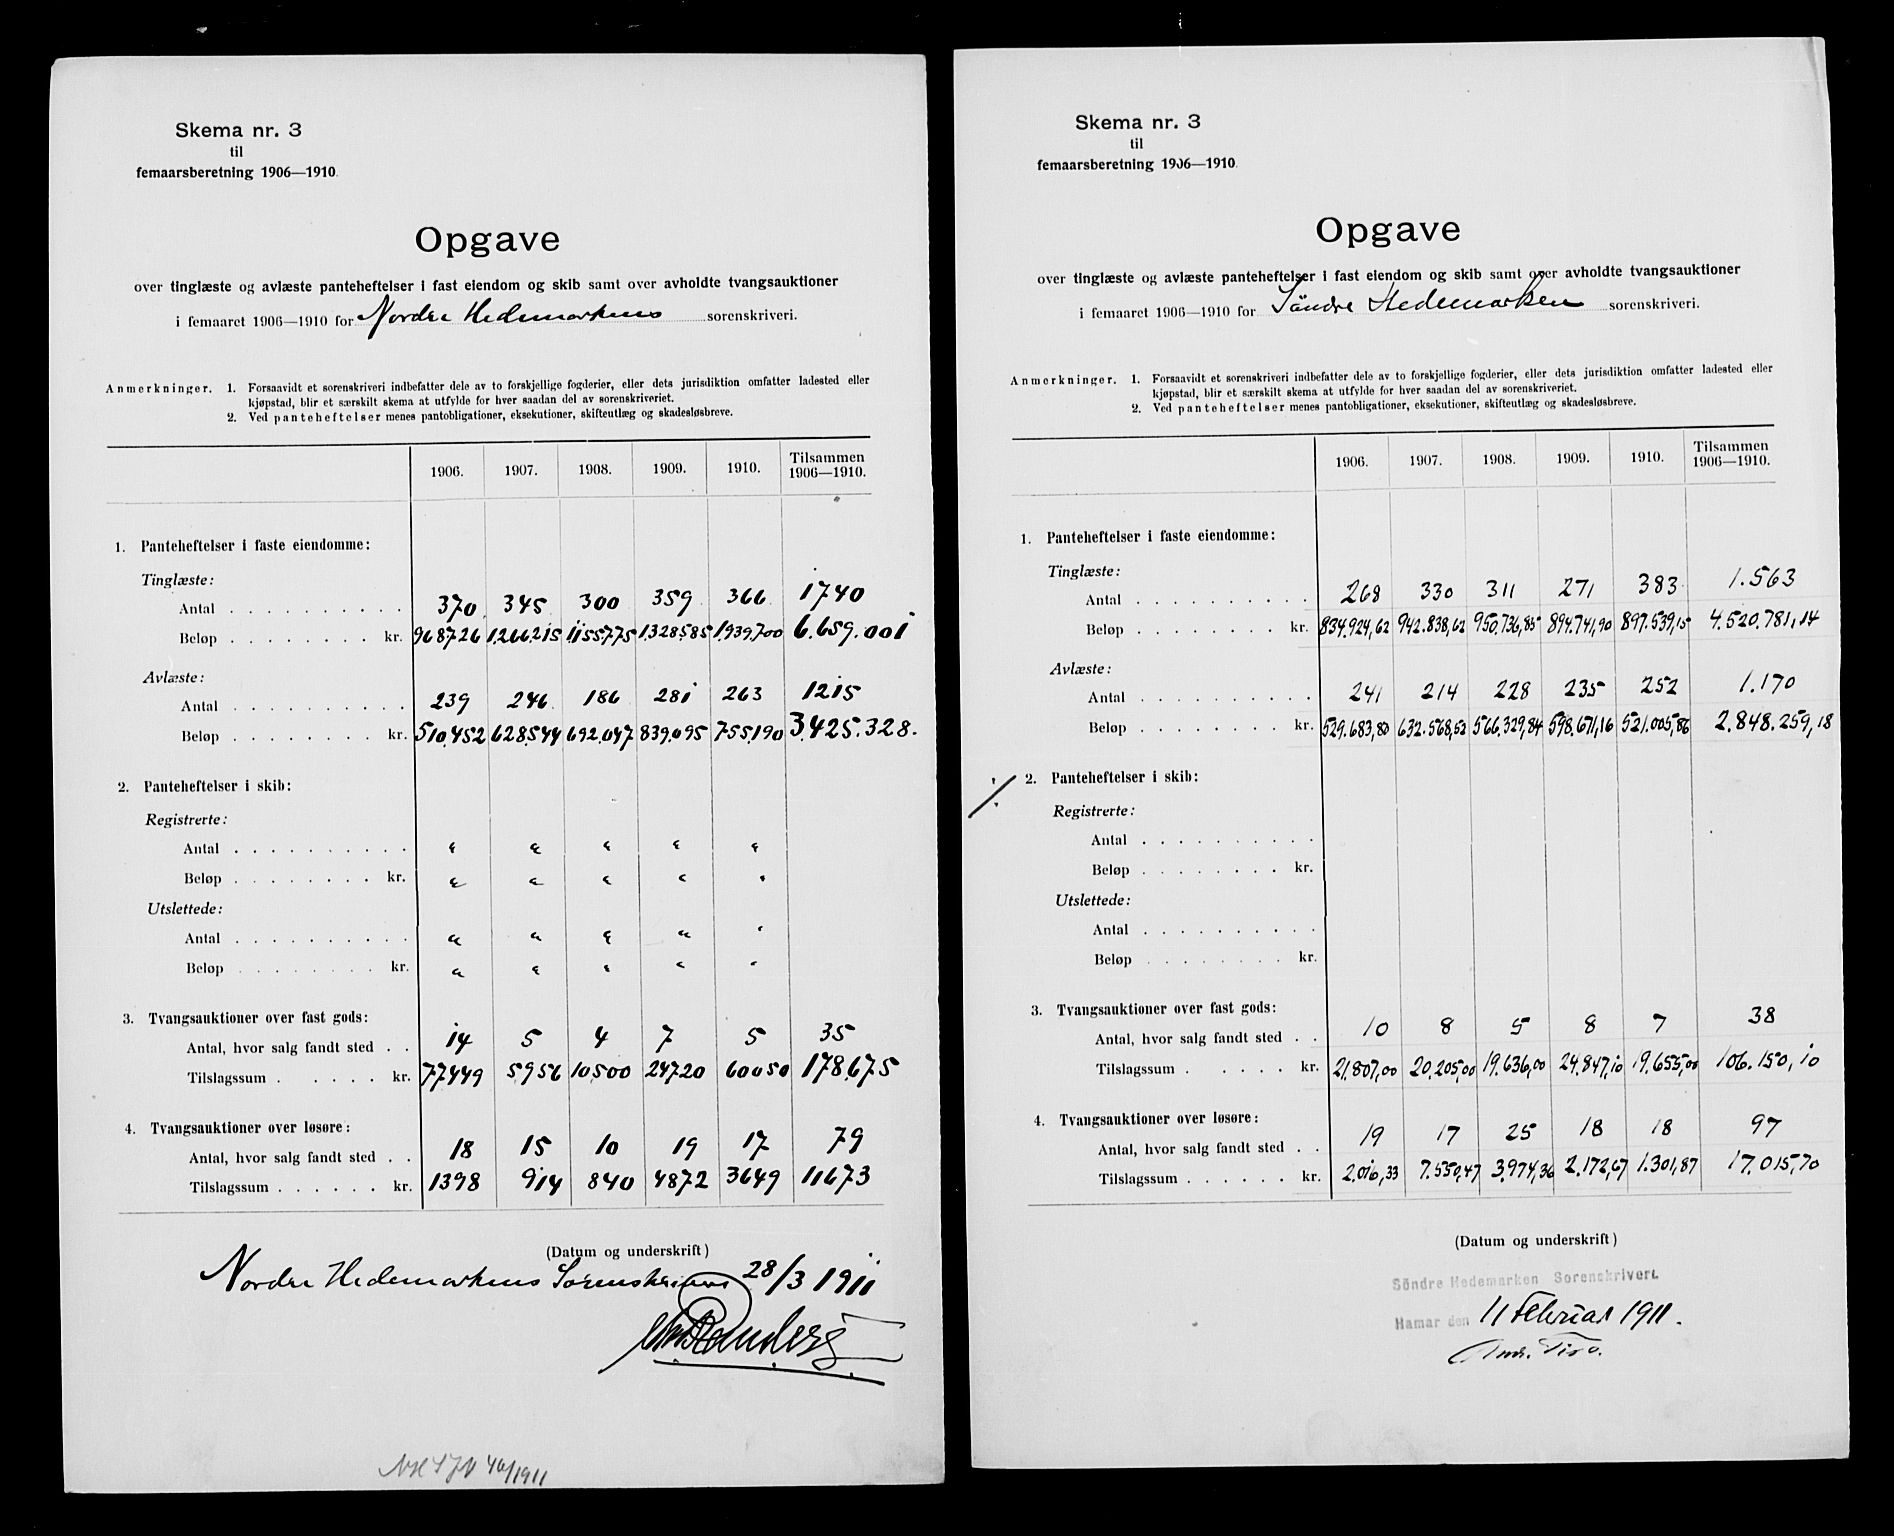 Skema nr. 3
til
femaarsberetning 1906—1910.
Opgave
over tinglæste og avlæste panteheftelser i fast eiendom og skib samt over avholdte tvangsauktioner
i femaaret 1906—1910 for Nordre Hedemarkens sorenskriveri.
Anmerkninger. 1. Forsaavidt et sorenskriveri indbefatter dele av to forskjellige fogderier, eller dets jurisdiktion omfatter ladested eller
kjøpstad, blir et særskilt skema at utfylde for hver saadan del av sorenskriveriet.
2. Ved panteheftelser menes pantobligationer, eksekutioner, skifteutlæg og skadesløsbreve.
1906. 1907. 1908. 1909. 1910. Tilsammen 1906—1910.
1. Panteheftelser i faste eiendomme:
Tinglæste:
Antal . . . . . . . . . . 370 345 300 359 366 1740
Beløp . . . . . . . . kr. 968726 1266215 1155775 1328585 1939700 6.659.001
Avlæste:
Antal . . . . . . . . . . 239 246 186 281 263 1215
Beløp . . . . . . . . kr. 510.452 628544 692.047 839.095 755.190 3.425.328.
2. Panteheftelser i skib:
Registrerte:
Antal . . . . . . . . . . " " " " "
Beløp . . . . . . . . kr. " " " " "
Utslettede:
Antal . . . . . . . . . . " " " " "
Beløp . . . . . . . . kr. " " " " "
3. Tvangsauktioner over fast gods:
Antal, hvor salg fandt sted . . 14 5 4 7 5 35
Tilslagssum . . . . . . kr. 77449 5956 10500 24720 60050 178675
4. Tvangsauktioner over løsøre:
Antal, hvor salg fandt sted . . 18 15 10 19 17 79
Tilslagssum . . . . . . kr. 1398 914 840 4872 3649 11673
(Datum og underskrift)
Nordre Hedemarkens Sorenskriveri 28/3 1911
46/1911
Skema nr. 3
til
femaarsberetning 1906—1910.
Opgave
over tinglæste og avlæste panteheftelser i fast eiendom og skib samt over avholdte tvangsauktioner
i femaaret 1906—1910 for Söndre Hedemarken sorenskriveri.
Anmerkninger. 1. Forsaavidt et sorenskriveri indbefatter dele av to forskjellige fogderier, eller dets jurisdiktion omfatter ladested eller
kjøpstad, blir et særskilt skema at utfylde for hver saadan del av sorenskriveriet.
2. Ved panteheftelser menes pantobligationer, eksekutioner, skifteutlæg og skadesløsbreve.
1906. 1907. 1908. 1909. 1910. Tilsammen 1906—1910.
1. Panteheftelser i faste eiendomme:
Tinglæste:
Antal . . . . . . . . . . 268 330 311 271 383 1.563
Beløp . . . . . . . . kr. 834.924,62 942.838,62 950.736,85 894.741,90 897.539,15 4.520.781,14
Avlæste:
Antal . . . . . . . . . . 241 214 228 235 252 1.170
Beløp . . . . . . . . kr. 529.683,80 632.568,52 566.329,84 598.671,16 521.005,86 2.848.259,18
./. 2. Panteheftelser i skib:
Registrerte:
Antal . . . . . . . . . .
Beløp . . . . . . . . kr.
Utslettede:
Antal . . . . . . . . . .
Beløp . . . . . . . . kr.
3. Tvangsauktioner over fast gods:
Antal, hvor salg fandt sted . . 10 8 5 8 7 38
Tilslagssum . . . . . . kr. 21.807,00 20.205,00 19.636,00 24.847,10 19.655,00 106.150,10
4. Tvangsauktioner over løsøre:
Antal, hvor salg fandt sted . . 19 17 25 18 18 97
Tilslagssum . . . . . . kr. 2.016,33 7.550,47 3.974,36 2.172,67 1.301,87 17.015,70
(Datum og underskrift)
Söndre Hedemarken Sorenskriveri.
Hamar den 11 Februar 1911.